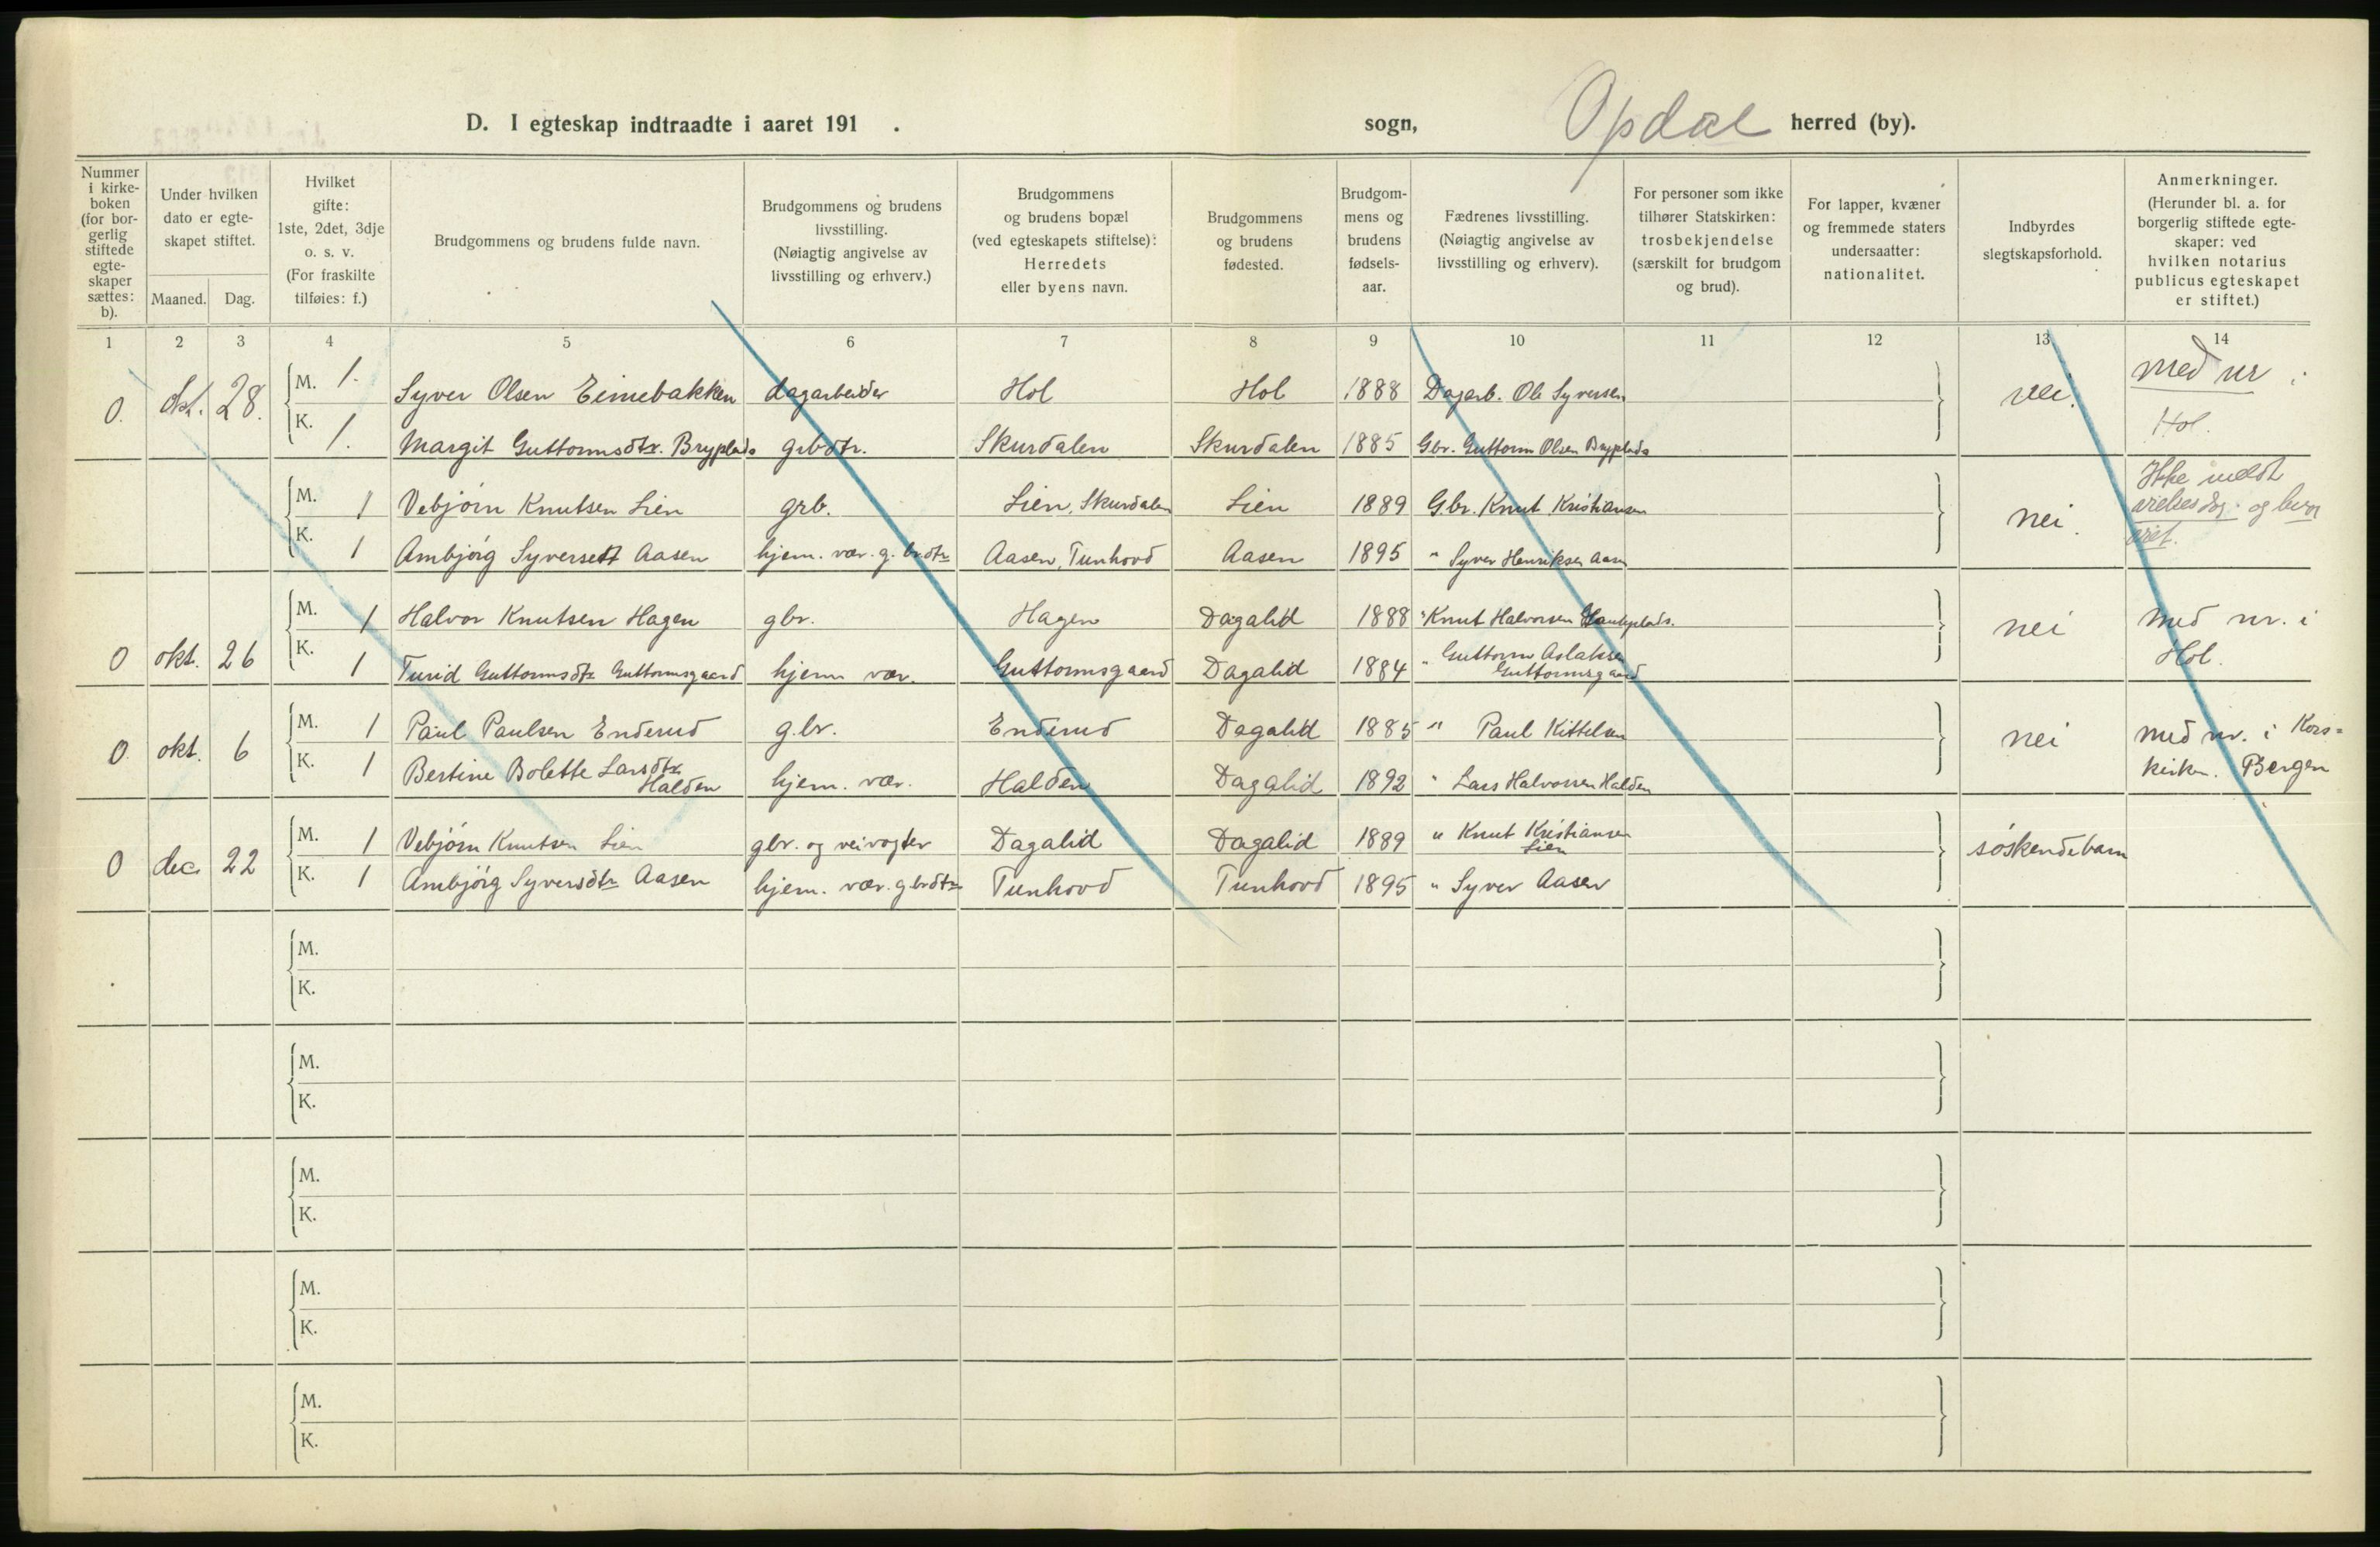 D. I egteskap indtraadte i aaret 191 . sogn, Opdal herred (by).
Nummer i kirke- boken (for bor- gerlig stiftede egte- skaper sættes: b).
Under hvilken dato er egte- skapet stiftet.
Maaned. Dag.
Hvilket gifte: 1ste, 2det, 3dje o. s. v. (For fraskilte tilføies: f.)
Brudgommens og brudens fulde navn.
Brudgommens og brudens livsstilling. (Nøiagtig angivelse av livsstilling og erhverv.)
Brudgommens og brudens bopæl (ved egteskapets stiftelse): Herredets eller byens navn.
Brudgommens og brudens fødested.
Brudgom- mens og brudens fødsels- aar.
Fædrenes livsstilling. (Nøiagtig angivelse av livsstilling og erhverv).
For personer som ikke tilhører Statskirken: trosbekjendelse (særskilt for brudgom og brud).
For lapper, kvæner og fremmede staters undersaatter: nationalitet.
Indbyrdes slegtskapsforhold.
Anmerkninger. (Herunder bl. a. for borgerlig stiftede egte- skaper: ved hvilken notarius publicus egteskapet er stiftet.)
1 2 3 4 5 6 7 8 9 10 11 12 13 14
0. okt. 28. M. 1. Syver Olsen Eimebakken dagarbeider Hol Hol 1888 Dagarb. Ole Syversen nei. med nr i
K. 1. Margit Guttormsdtr. Bryplads grbdtr. Skurdalen Skurdalen 1885 Gbr. Guttorm Olsen Bryplads Hol.
M. 1 Vebjörn Knutsen Lien grb. Lien, Skurdalen Lien 1889 Gbr. Knut Kristiansen nei. Ikke meldt
vielsesdag og hvor
K. 1 Ambjörg Syversett Aasen hjem. vær. g. br.dtr Aasen, Tunhovd Aasen 1895 " Syver Henriksen Aasen viet.
M. 1 Halvor Knutsen Hagen gbr. Hagen Dagalid 1888 " Knut Halvorsen nei med nr. i
0 okt. 26 K. 1 Turid Guttormsdtr Guttormsgaard hjem vær. Guttormsgaard Dagalid 1884 " Guttorm Aslaksen Hol.
Guttormsgaard
0. okt. 6 M. 1 Paul Paulsen Enderud g.br. Enderud Dagalid 1885 " Paul Kittelsen nei med nr. i Kors=
K. 1 Bertine Bolette Larsdtr hjem. vær. Halden Dagalid 1892 " Lars Halvorsen Halden kirken. Bergen
Halden
0 dec. 22 M. 1 Vebjörn Knutsen Lien gbr. og veivogter Dagalid Dagalid 1889 " Knut Kristiansen söskendebarn
Lien
K. 1 Ambjörg Syversdtr Aasen hjem. vær. gbrdtr Tunhovd Tunhovd 1895 " Syver Aasen
M.
K.
M.
K.
M.
K.
M.
K.
M.
K.